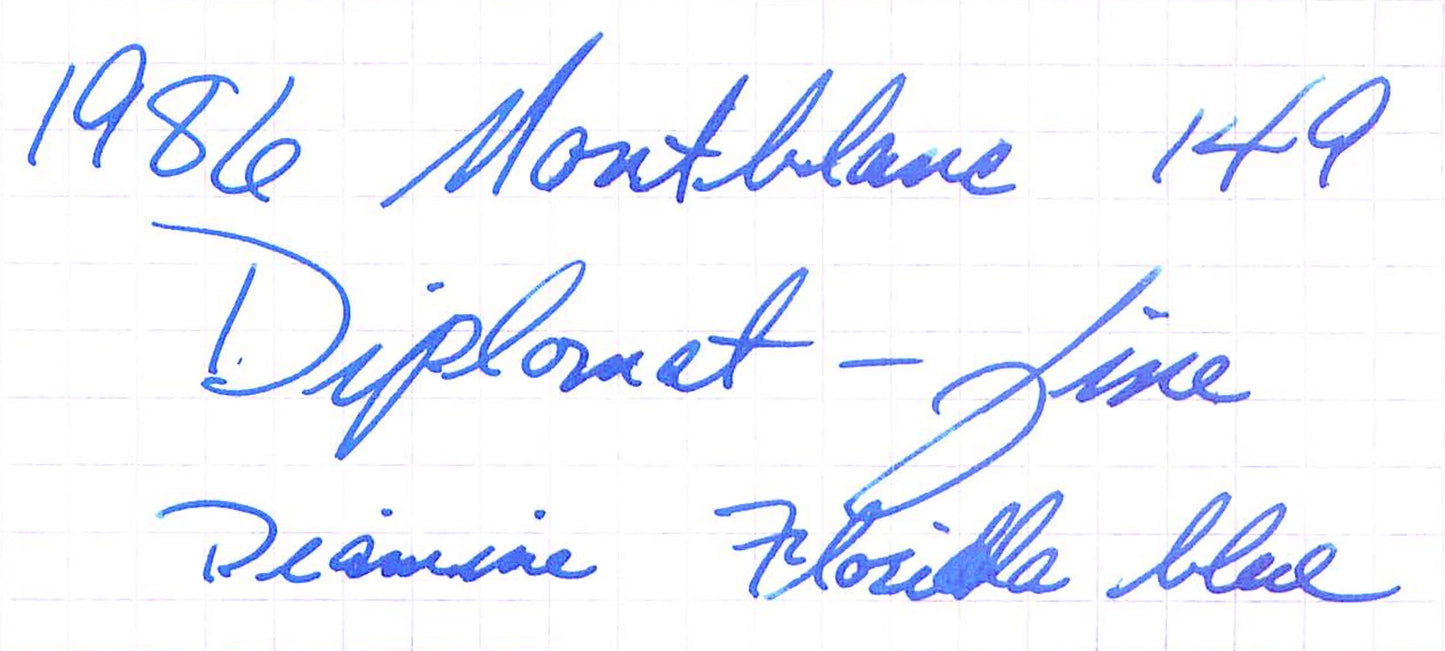 1986 Montblanc 149
Diplomat - fine
Diamine Florida blue